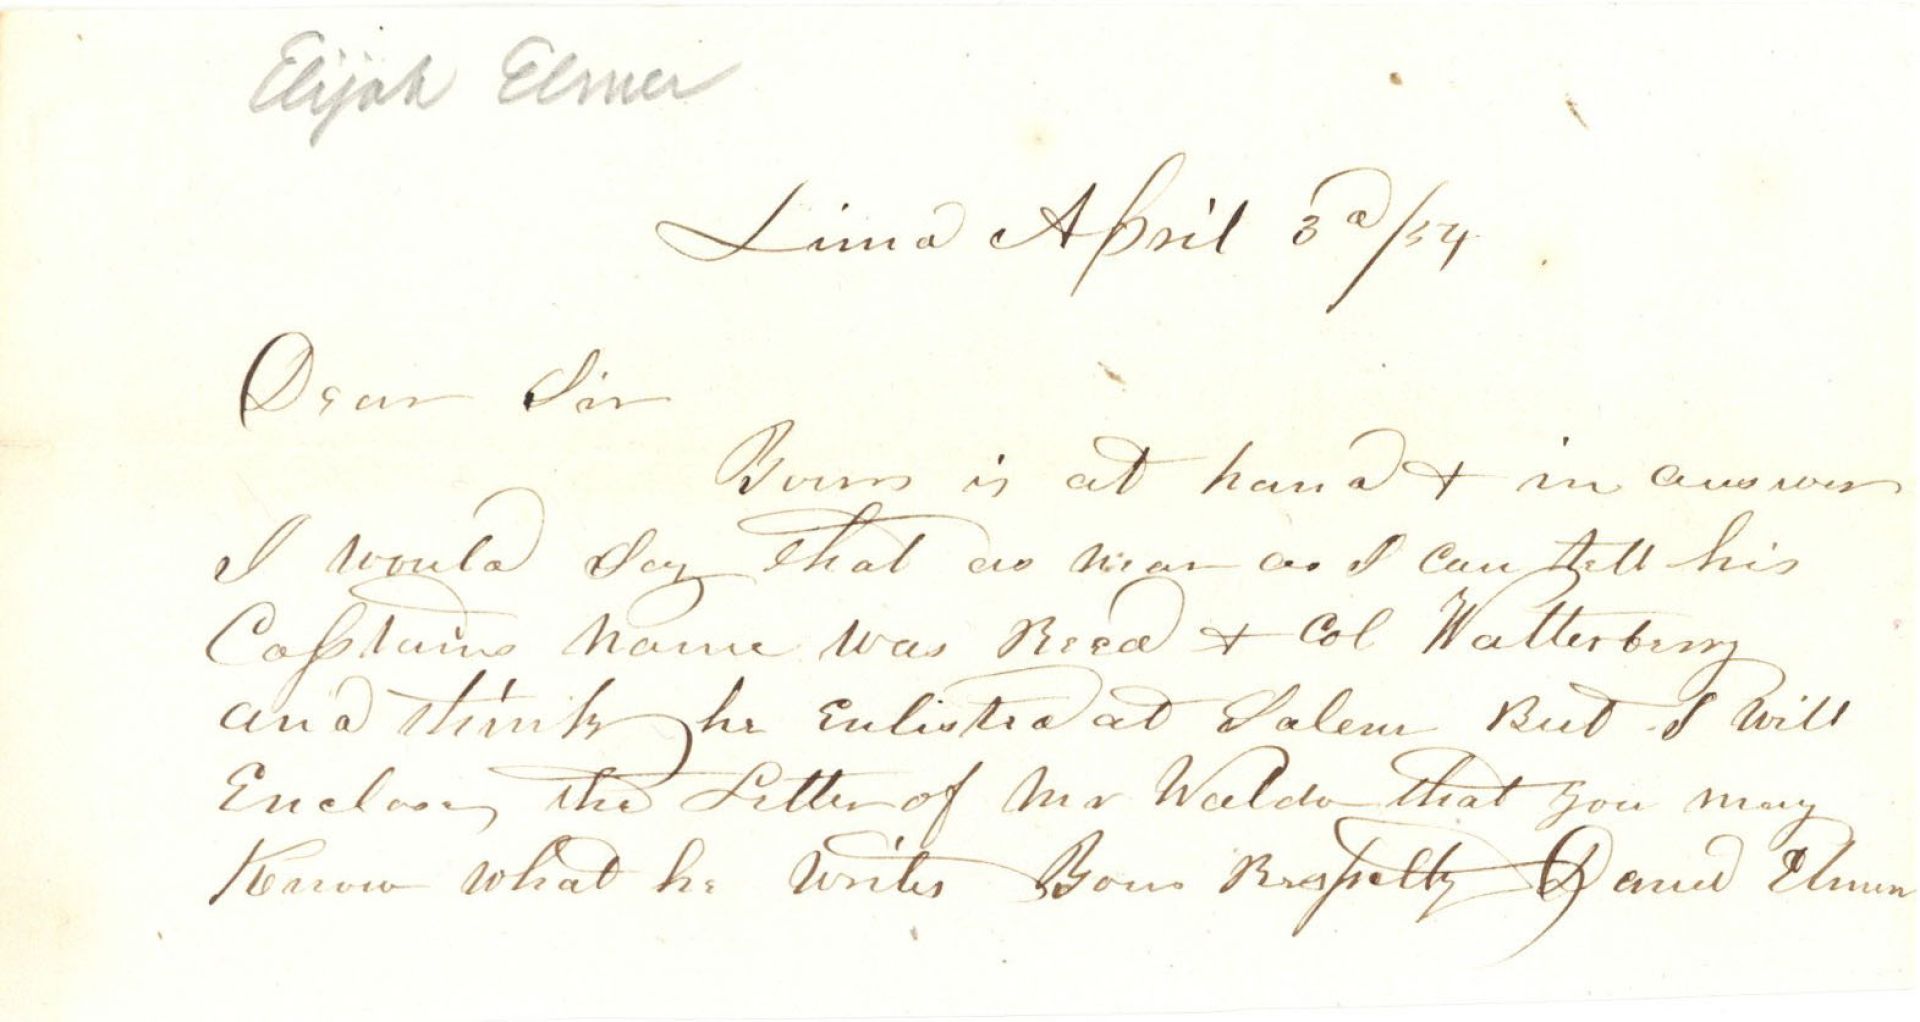 Elijah Elmer
Lima April 3d/54
Dear Sir
Yours is at hand & in answer
I would Say that as near as I can tell his
Captains name was Reed & Col Watterberry
and think he Enlisted at Salem But I will
Enclose the Letter of Mr Waldo that you may
Know what he writes Yours Respectly David Elmer